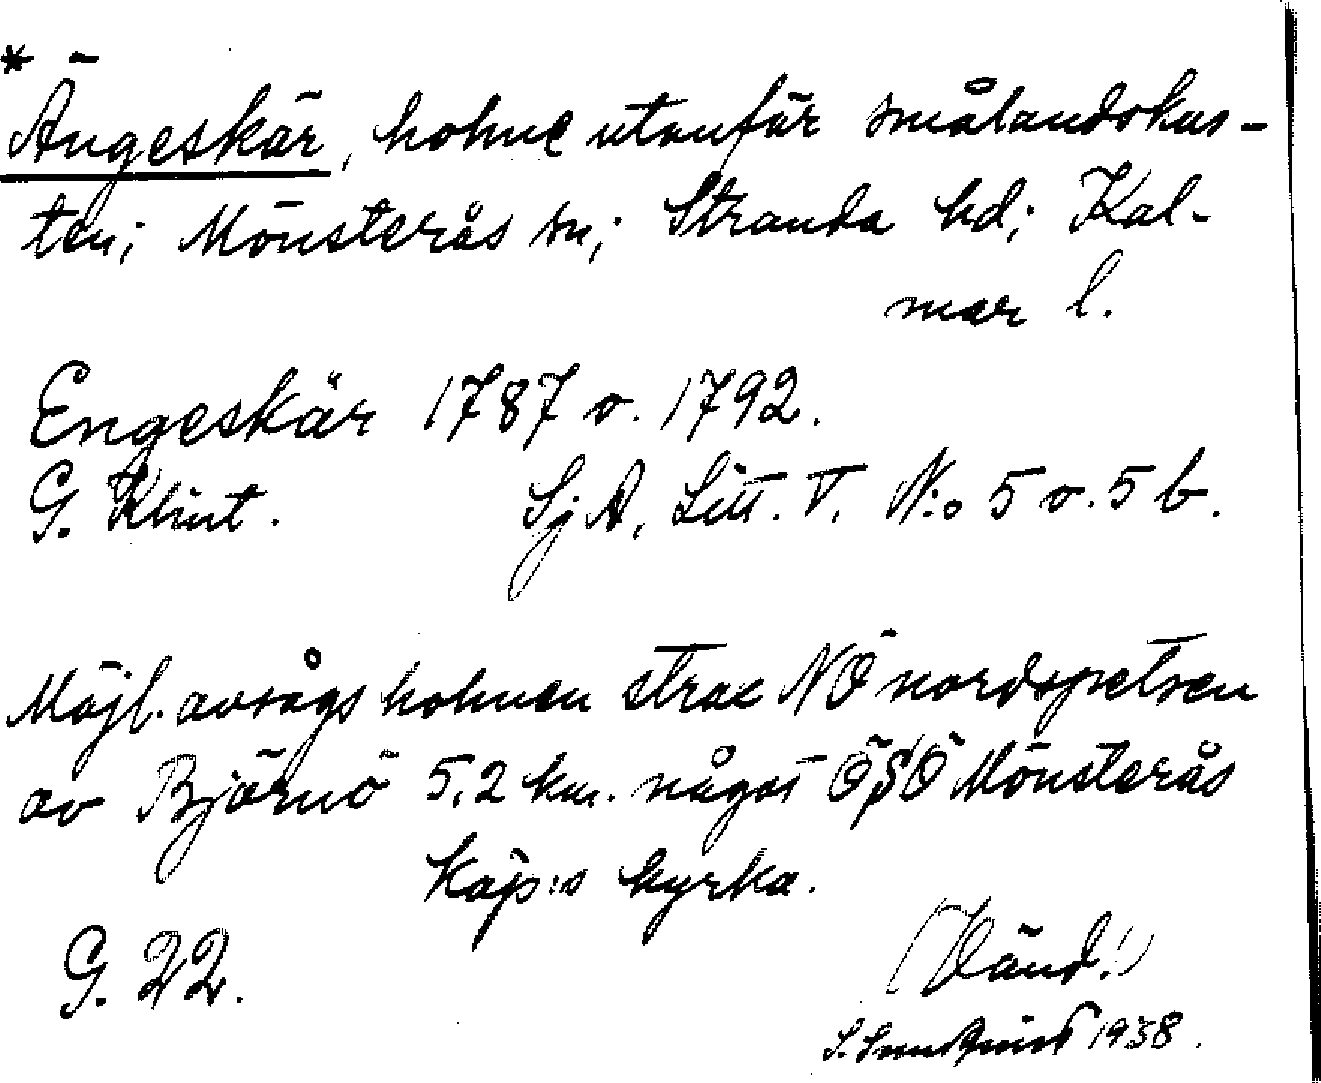 * Ängeskär, holme utanför smålandskus-
ten; Mönsterås sn; Stranda hd; Kal-
mar l.
Engeskär 1787 o. 1792.
G. Klint. SjA, Litt. T. N:o 5 o. 5 b.
Möjl. avsågs holmen strax NÖ nordspetsen
av Björnö 5,2 km. något ÖSÖ Mönsterås
köp:s kyrka.
G. 22. (Vänd!)
S. 1938.